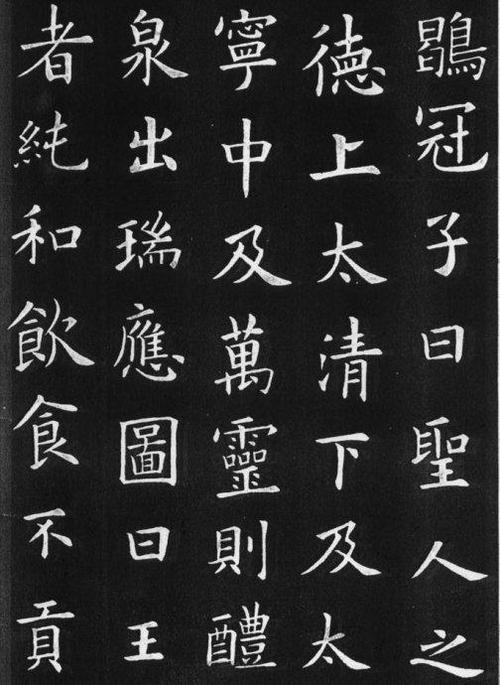 鶡冠子曰聖人之
德上太清下及太
寧中及萬靈則醴
泉出瑞應圖曰王
者純和飲食不貢